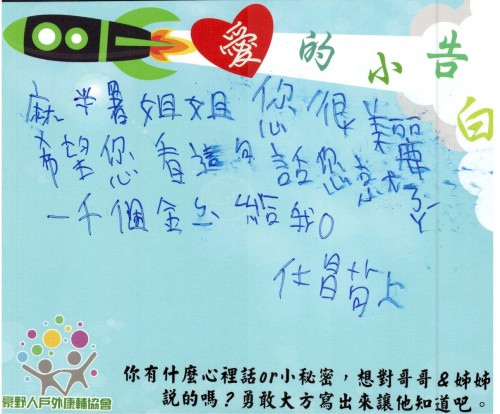 愛的小告白
麻署姐姐 您很美麗
希望您看這句話您
一千個金 給我。
仕昌背上
豪野人戶外康輔協會
你有什麼心裡話or小秘密，想對哥哥&姊姊
說的嗎？勇敢大方寫出來讓他知道吧。